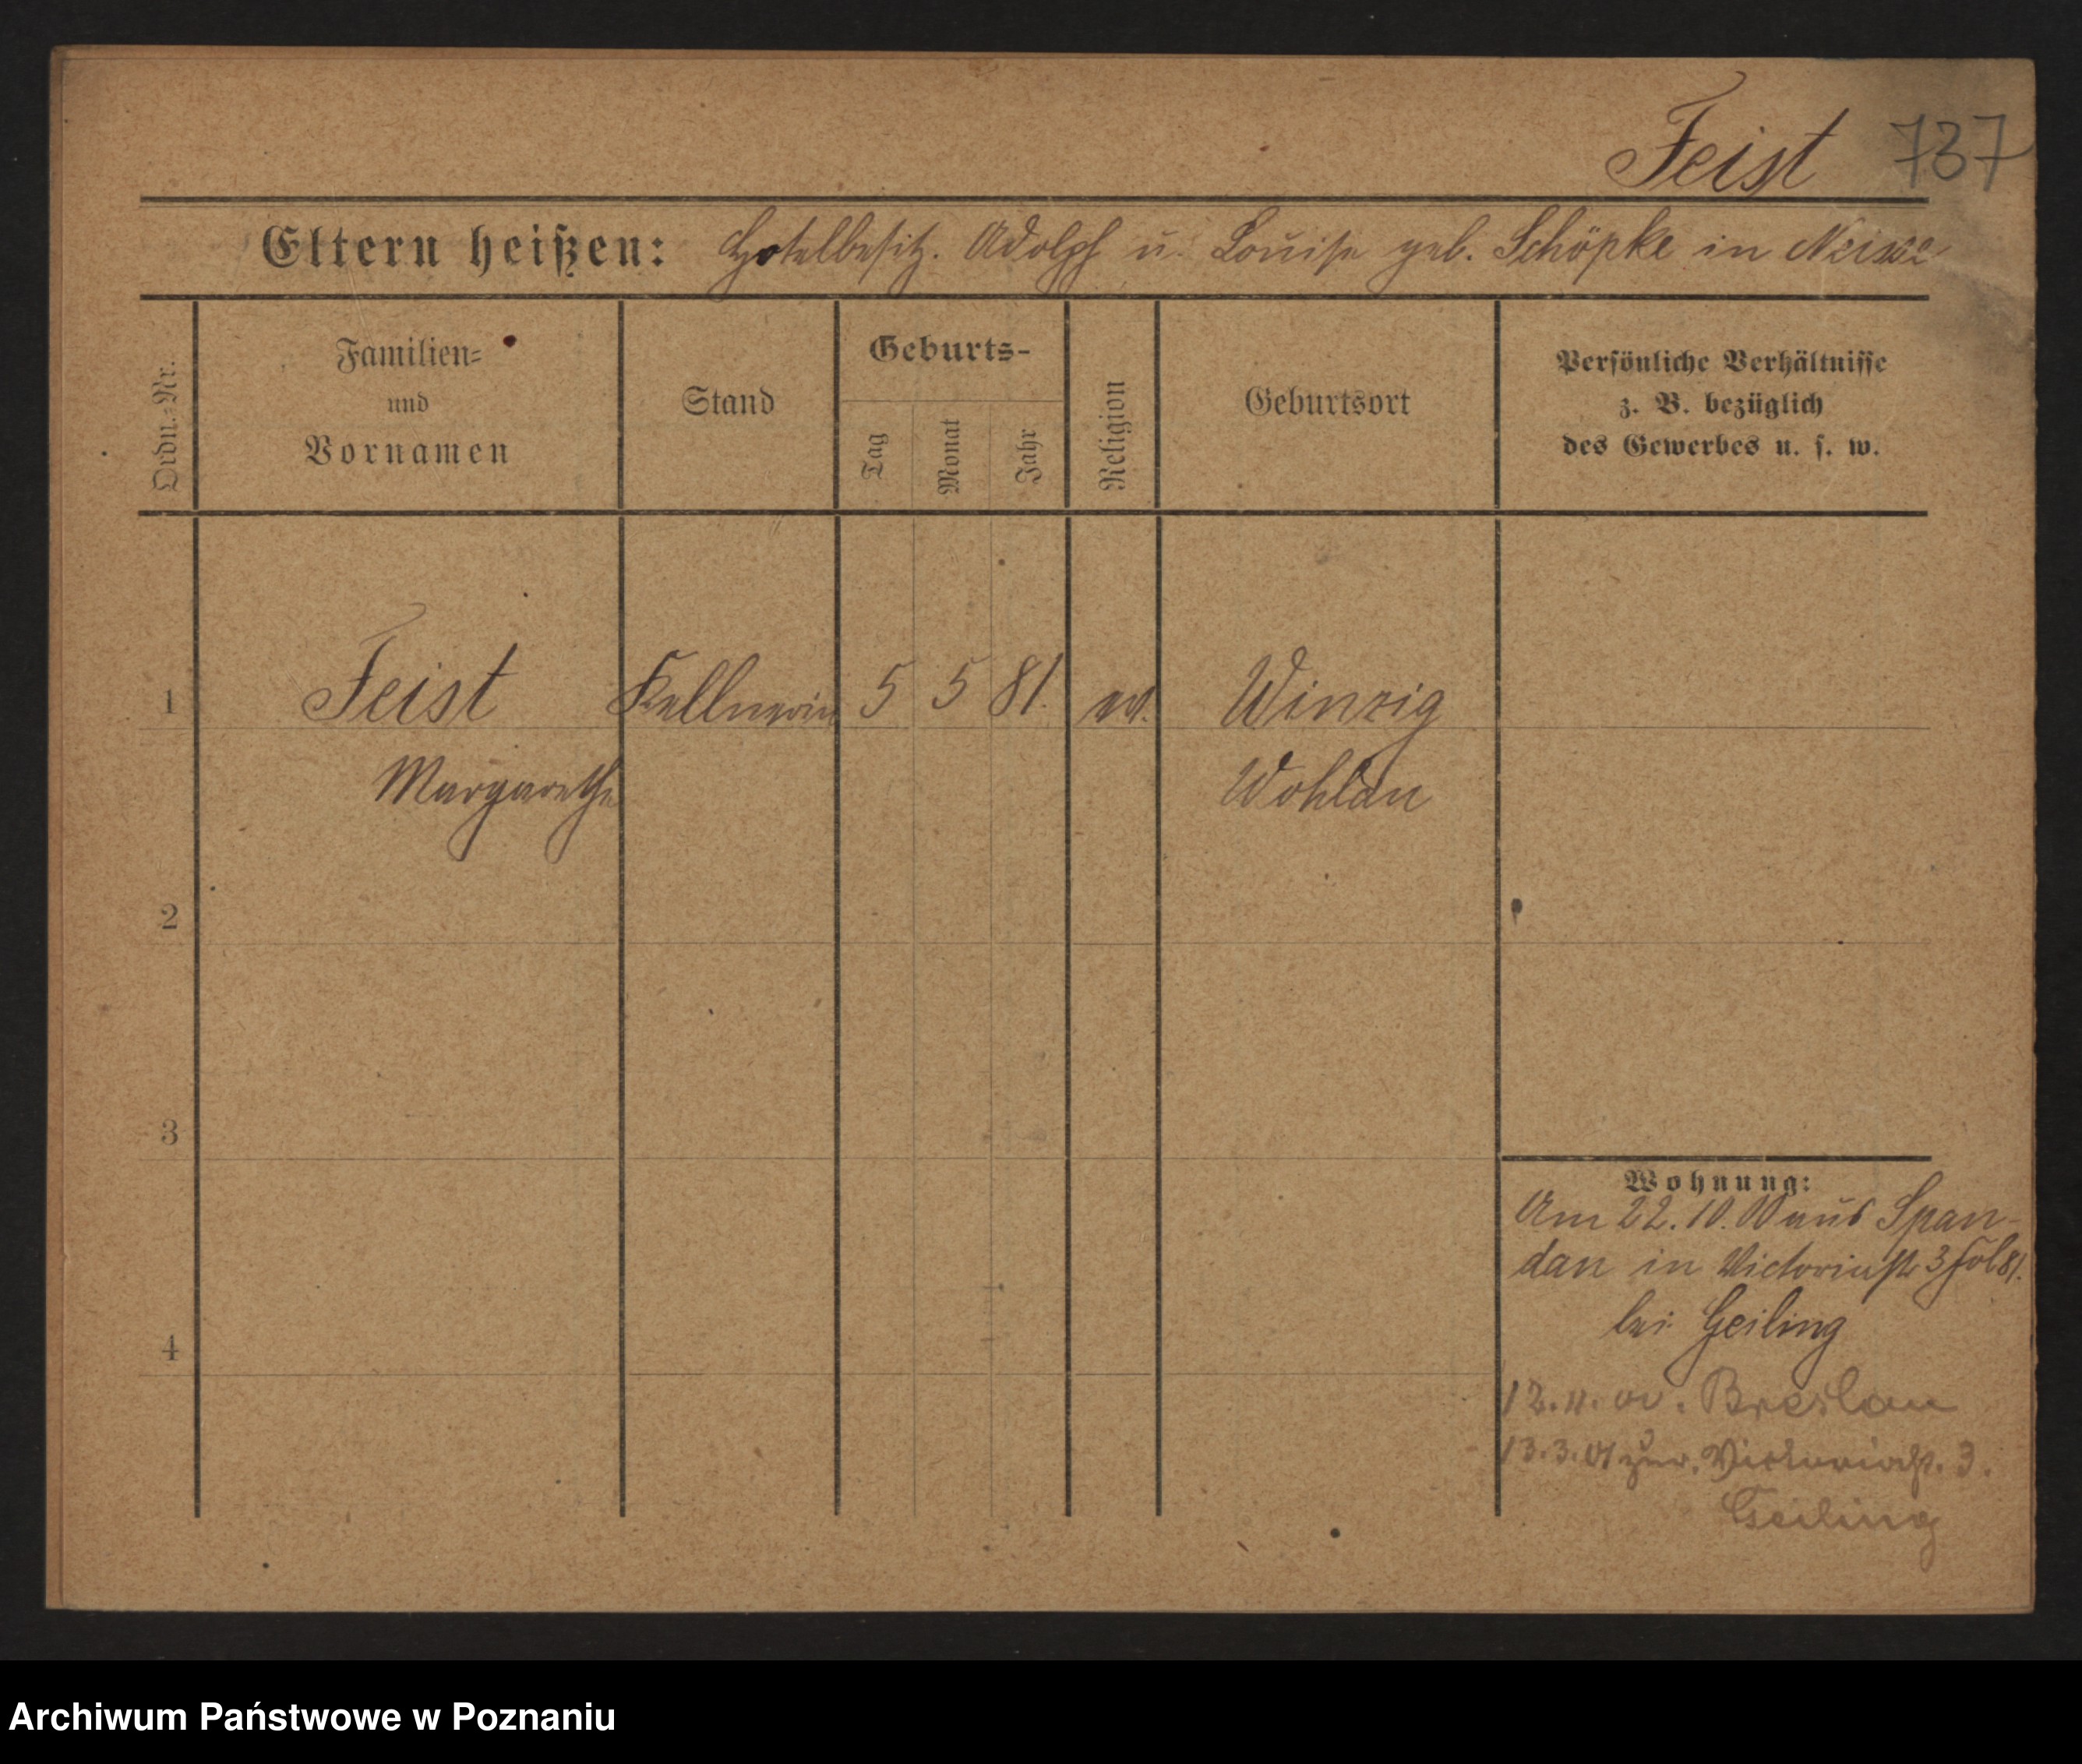 Feist 737
Eltern heißen: Hotelbesitz. Adolph u. Louise geb. Schöpke in Neisse
Ordn.=Nr.
Familien=
und
Vornamen
Stand
Geburts-
Tag
Monat
Jahr
Religion
Geburtsort
Persönliche Verhältnisse
z. B. bezüglich
des Gewerbes u. s. w.
1 Feist Kellnerin 5 5 81. ev. Winzig
Margarethe Wohlau
2
3
4
Wohnung:
Am 22.10.00 aus Span-
dau in Victoriastr 3 fol 81.
bei Geiling
12.11.00. Breslau
13.3.01 zur. Victoriastr. 3.
Geiling
Archiwum Państwowe w Poznaniu